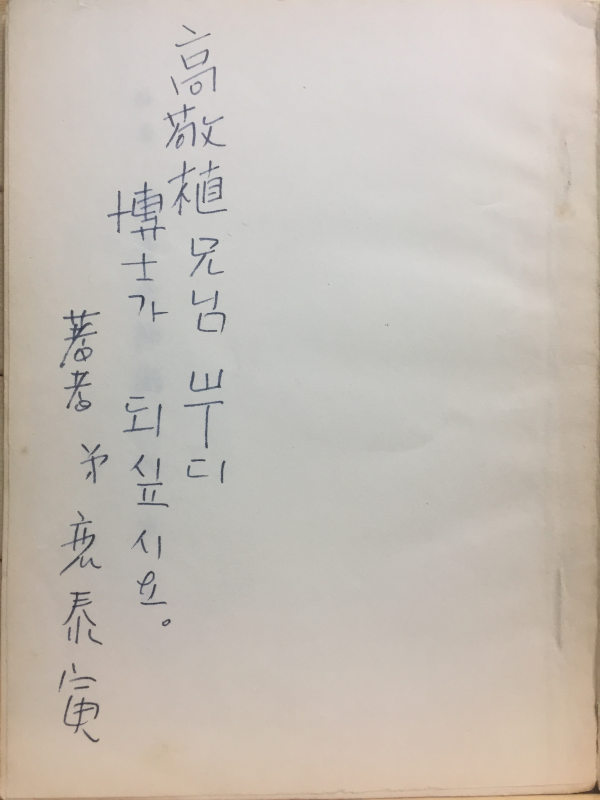 高敬植兄님 부디
博士가 되십시요。
著者 弟 裵泰寅